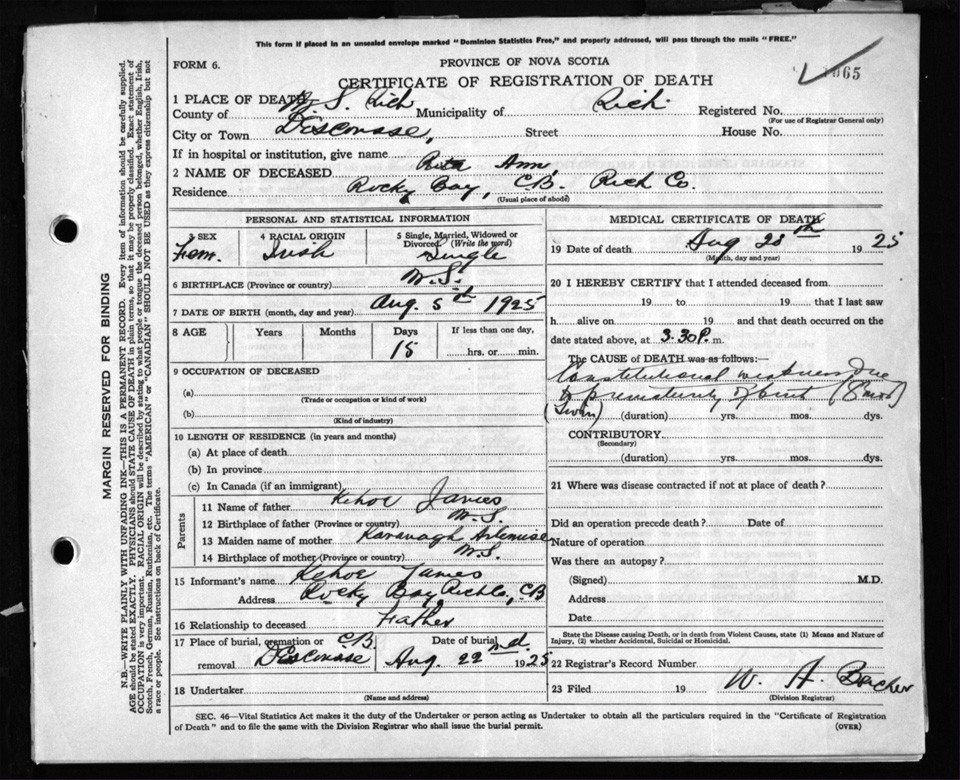 This form if placed in an unsealed envelope marked "Dominion Statistics Free," and properly addressed, will pass through the mails "FREE."
FORM 6.
PROVINCE OF NOVA SCOTIA
CERTIFICATE OF REGISTRATION OF DEATH
1 PLACE OF DEATH
County of N.S. Rich Municipality of Rich Registered No.
(For use of Registrar General only)
City or Town Descousse, Street House No.
If in hospital or institution, give name
2 NAME OF DECEASED Ann
Residence Rocky Bay, C.B. Rich Co.
(Usual place of abode)
PERSONAL AND STATISTICAL INFORMATION
3 SEX Fem.
4 RACIAL ORIGIN Irish
5 Single, Married, Widowed or Divorced (Write the word) Single
6 BIRTHPLACE (Province or country) N.S.
7 DATE OF BIRTH (month, day and year) Aug. 5th 1925
8 AGE Years Months Days 15 If less than one day, hrs. or min.
9 OCCUPATION OF DECEASED
(a)
(Trade or occupation or kind of work)
(b)
(Kind of industry)
10 LENGTH OF RESIDENCE (in years and months)
(a) At place of death
(b) In province
(c) In Canada (if an immigrant)
Parents
11 Name of father Kehoe James
12 Birthplace of father (Province or country) N.S.
13 Maiden name of mother Kavanagh Artemise
14 Birthplace of mother (Province or country) N.S.
15 Informant's name Kehoe James
Address Rocky Bay Rich Co., C.B
16 Relationship to deceased Father
17 Place of burial, cremation or removal C.B. Descousse
Date of burial Aug. 22nd. 1925
18 Undertaker
(Name and address)
MEDICAL CERTIFICATE OF DEATH
19 Date of death Aug 20th 1925
(Month, day and year)
20 I HEREBY CERTIFY that I attended deceased from
19 to 19 that I last saw
h alive on 19 and that death occurred on the
date stated above, at 3.30 P. m.
The CAUSE of DEATH was as follows:—
Constitutional weakness due
to prematurity of birth (8 mos)
(Twin) (duration) yrs. mos. dys.
CONTRIBUTORY
(Secondary)
(duration) yrs. mos. dys.
21 Where was disease contracted if not at place of death?
Did an operation precede death? Date of
Nature of operation
Was there an autopsy?
(Signed) M.D.
Address
Date
State the Disease causing Death, or in death from Violent Causes, state (1) Means and Nature of
Injury, (2) whether Accidental, Suicidal or Homicidal.
22 Registrar's Record Number
23 Filed 19 W. A.
(Division Registrar)
SEC. 46—Vital Statistics Act makes it the duty of the Undertaker or person acting as Undertaker to obtain all the particulars required in the "Certificate of Registration
of Death" and to file the same with the Division Registrar who shall issue the burial permit. (OVER)
MARGIN RESERVED FOR BINDING
N.B.—WRITE PLAINLY WITH UNFADING INK—THIS IS A PERMANENT RECORD. Every item of information should be carefully supplied.
AGE should be stated EXACTLY. PHYSICIANS should STATE CAUSE OF DEATH in plain terms, so that it may be properly classified. Exact statement of
OCCUPATION is very important. RACIAL ORIGIN will be described by stating to what people or tongue the deceased person belonged, whether English, Irish,
Scotch, French, German, Russian, Ruthenian, etc. The terms "AMERICAN" or "CANADIAN" SHOULD NOT BE USED as they express citizenship but not
a race or people. See instructions on back of Certificate.